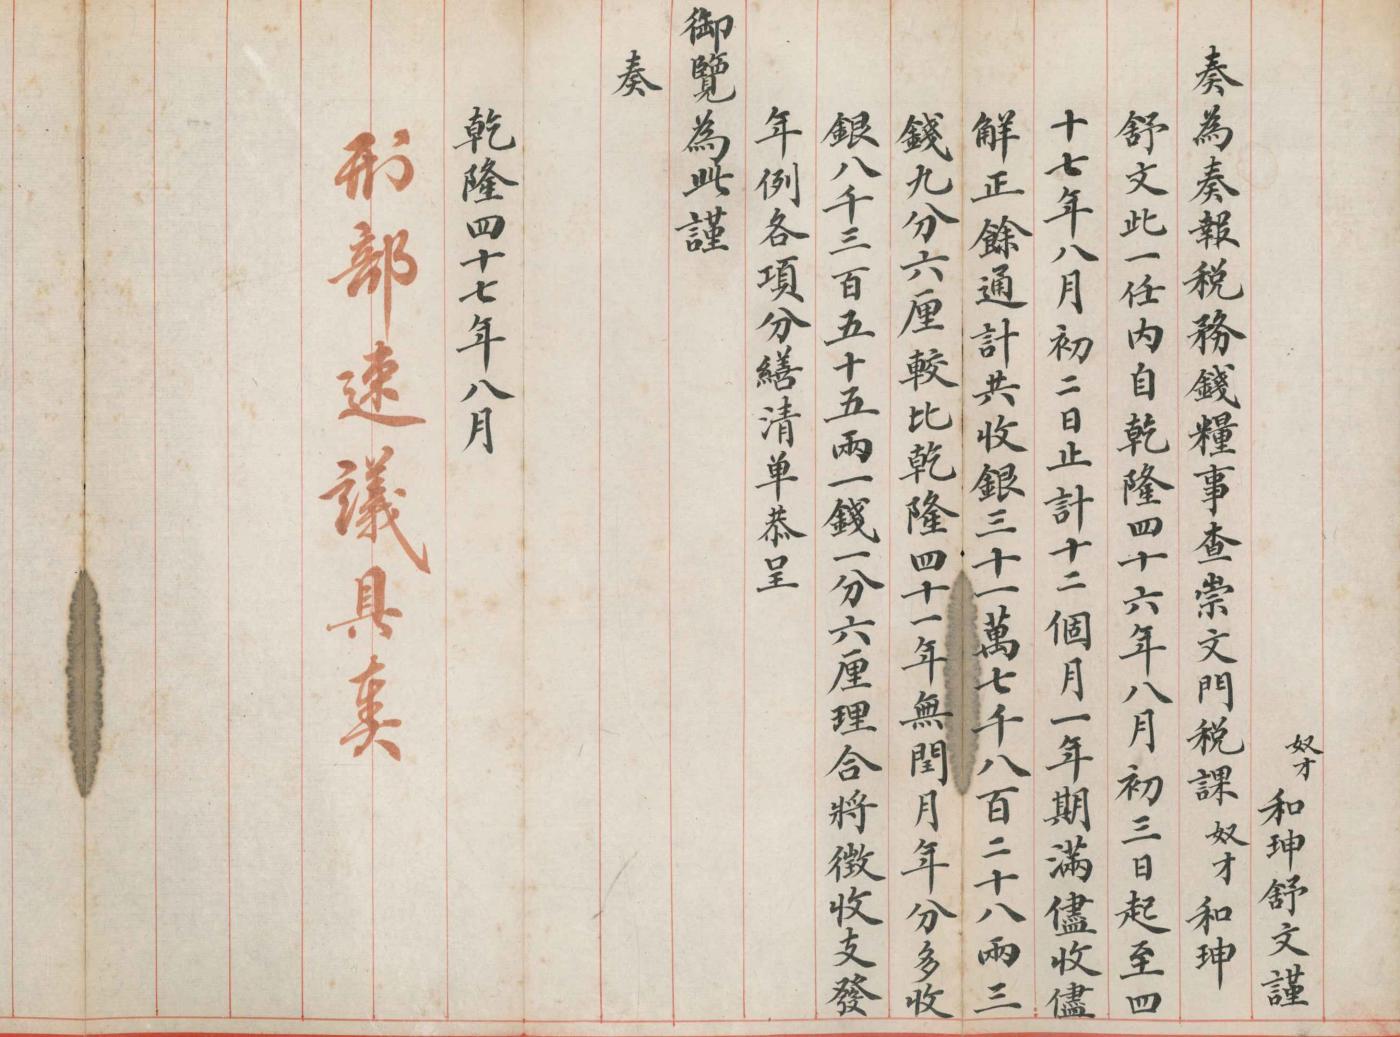 奴才和珅舒文謹
奏為奏報稅務錢糧事查崇文門稅課奴才和珅
舒文此一任内自乾隆四十六年八月初三日起至四
十七年八月初二日止計十二個月一年期滿儘收儘
解正餘通計共收銀三十一萬七千八百二十八兩三
錢九分六厘較比乾隆四十一年無閏月年分多收
銀八千三百五十五兩一錢一分六厘理合將徵收支發
年例各項分繕清单恭呈
御覽為此謹
奏
乾隆四十七年八月
刑部速議具奏